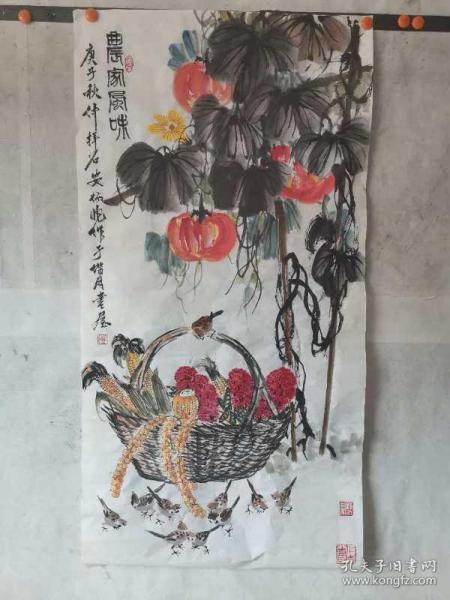 農家風味
庚子秋仲择石安炳作于借月書屋
孔夫子旧书网
www.kongfz.com